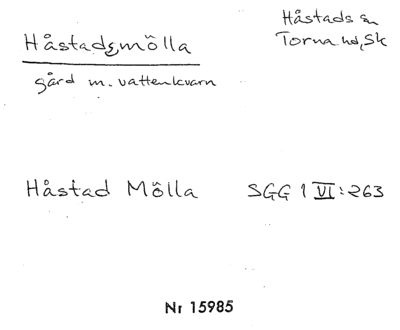 Håstadsmölla
gård m. vattenkvarn
Håstads sn
Torna hd, Sk
Håstad Mölla SGG 1 VI:263
Nr 15985